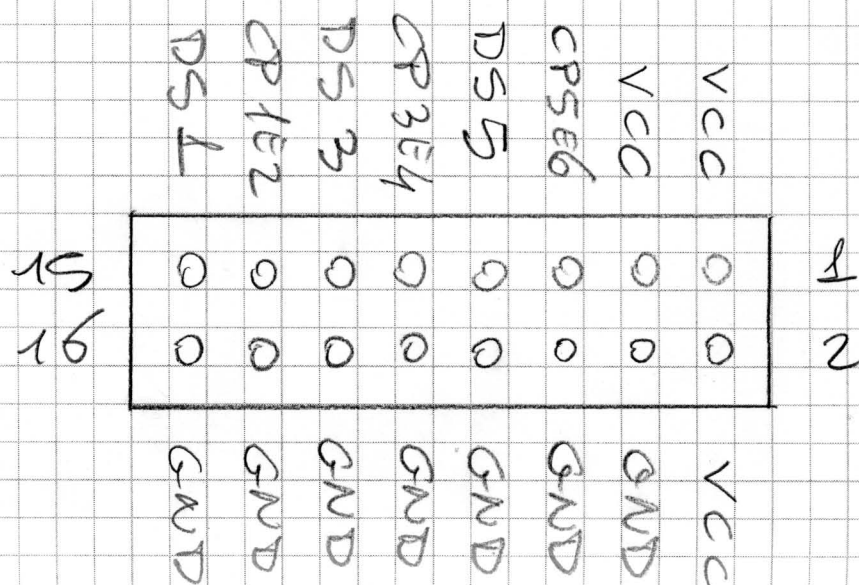 DS1 CP1E2 DS3 CP3E4 DS5 CP5E6 VCC VCC
15 1
16 2
GND GND GND GND GND GND GND VCC